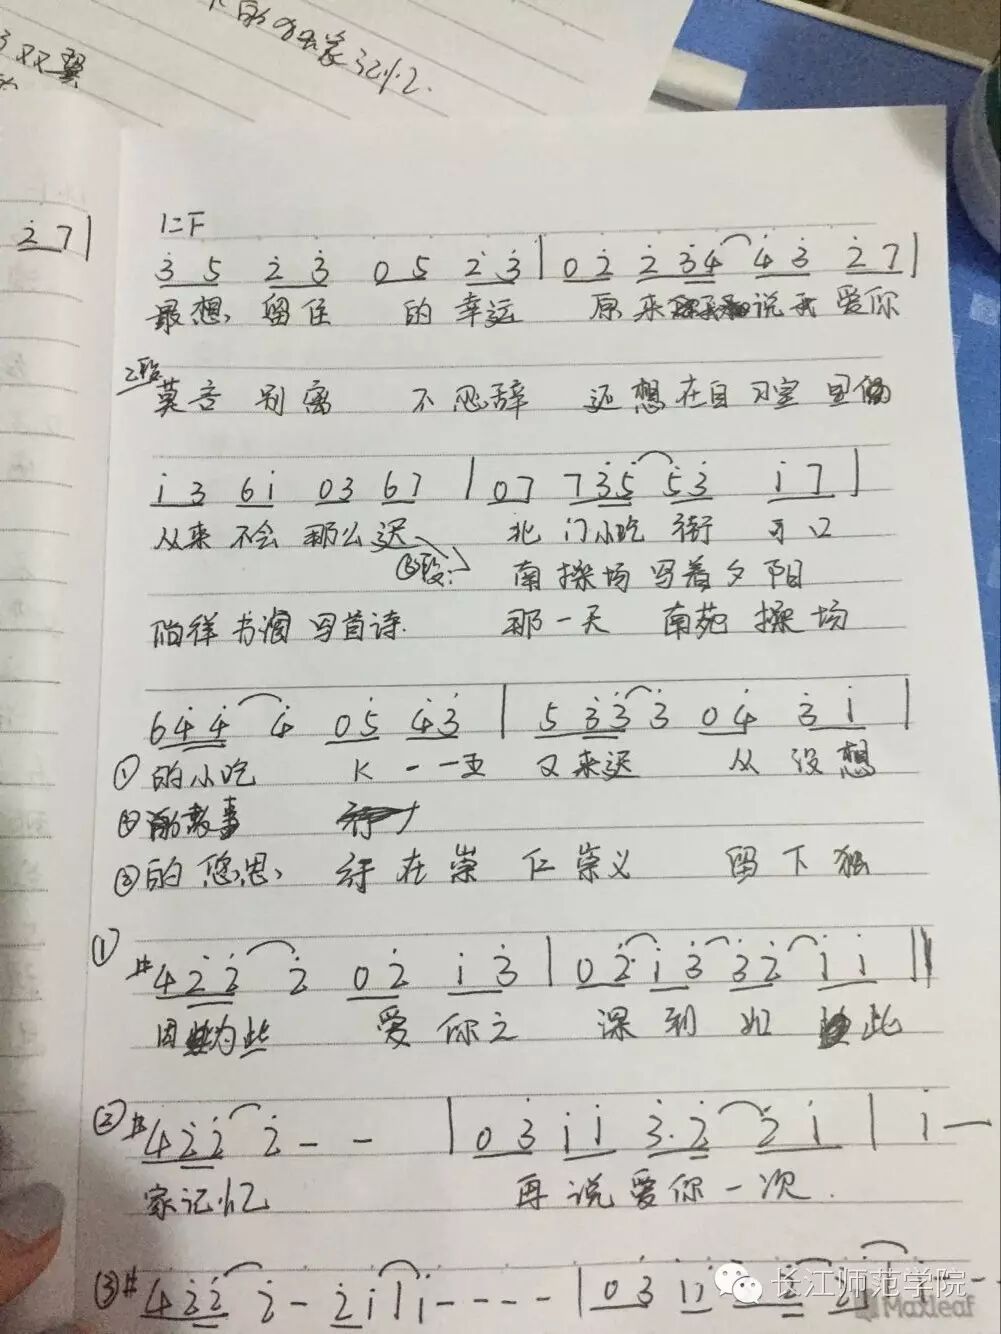 双双翼
2 7 |
仁下
3 5 2 3 0 5 2 3 | 0 2 2 3 4 4 3 2 7 |
最想 留住 的 幸运 原来 说我 爱你
2段
莫言 别离 不忍辞 还想在自习室里
1 3 6 1 0 3 6 7 | 0 7 7 3 5 5 3 1 7 |
从来 不会 那么 迟 北门小吃 街 可口
③段:
南操场写着夕阳
徜徉 书海 写首诗 那一天 南苑 操场
6 4 4 4 0 5 4 3 | 5 3 3 3 0 4 3 1 |
①的小吃 K 一 一五 又来迟 从没想
②的故事
③的 行在崇仁崇义 留下独
① #4 2 2 2 0 2 1 3 | 0 2 · 1 3 3 2 1 1 ||
因为此 爱你之 深到如 此
② #4 2 2 2 - - | 0 3 1 1 3 . 2 2 1 | 1 -
家记忆 再说爱你一次.
③ #4 2 2 2 - 2 1 | 1 - - - - | 0 3 1 1
长江师范学院
Maxleaf